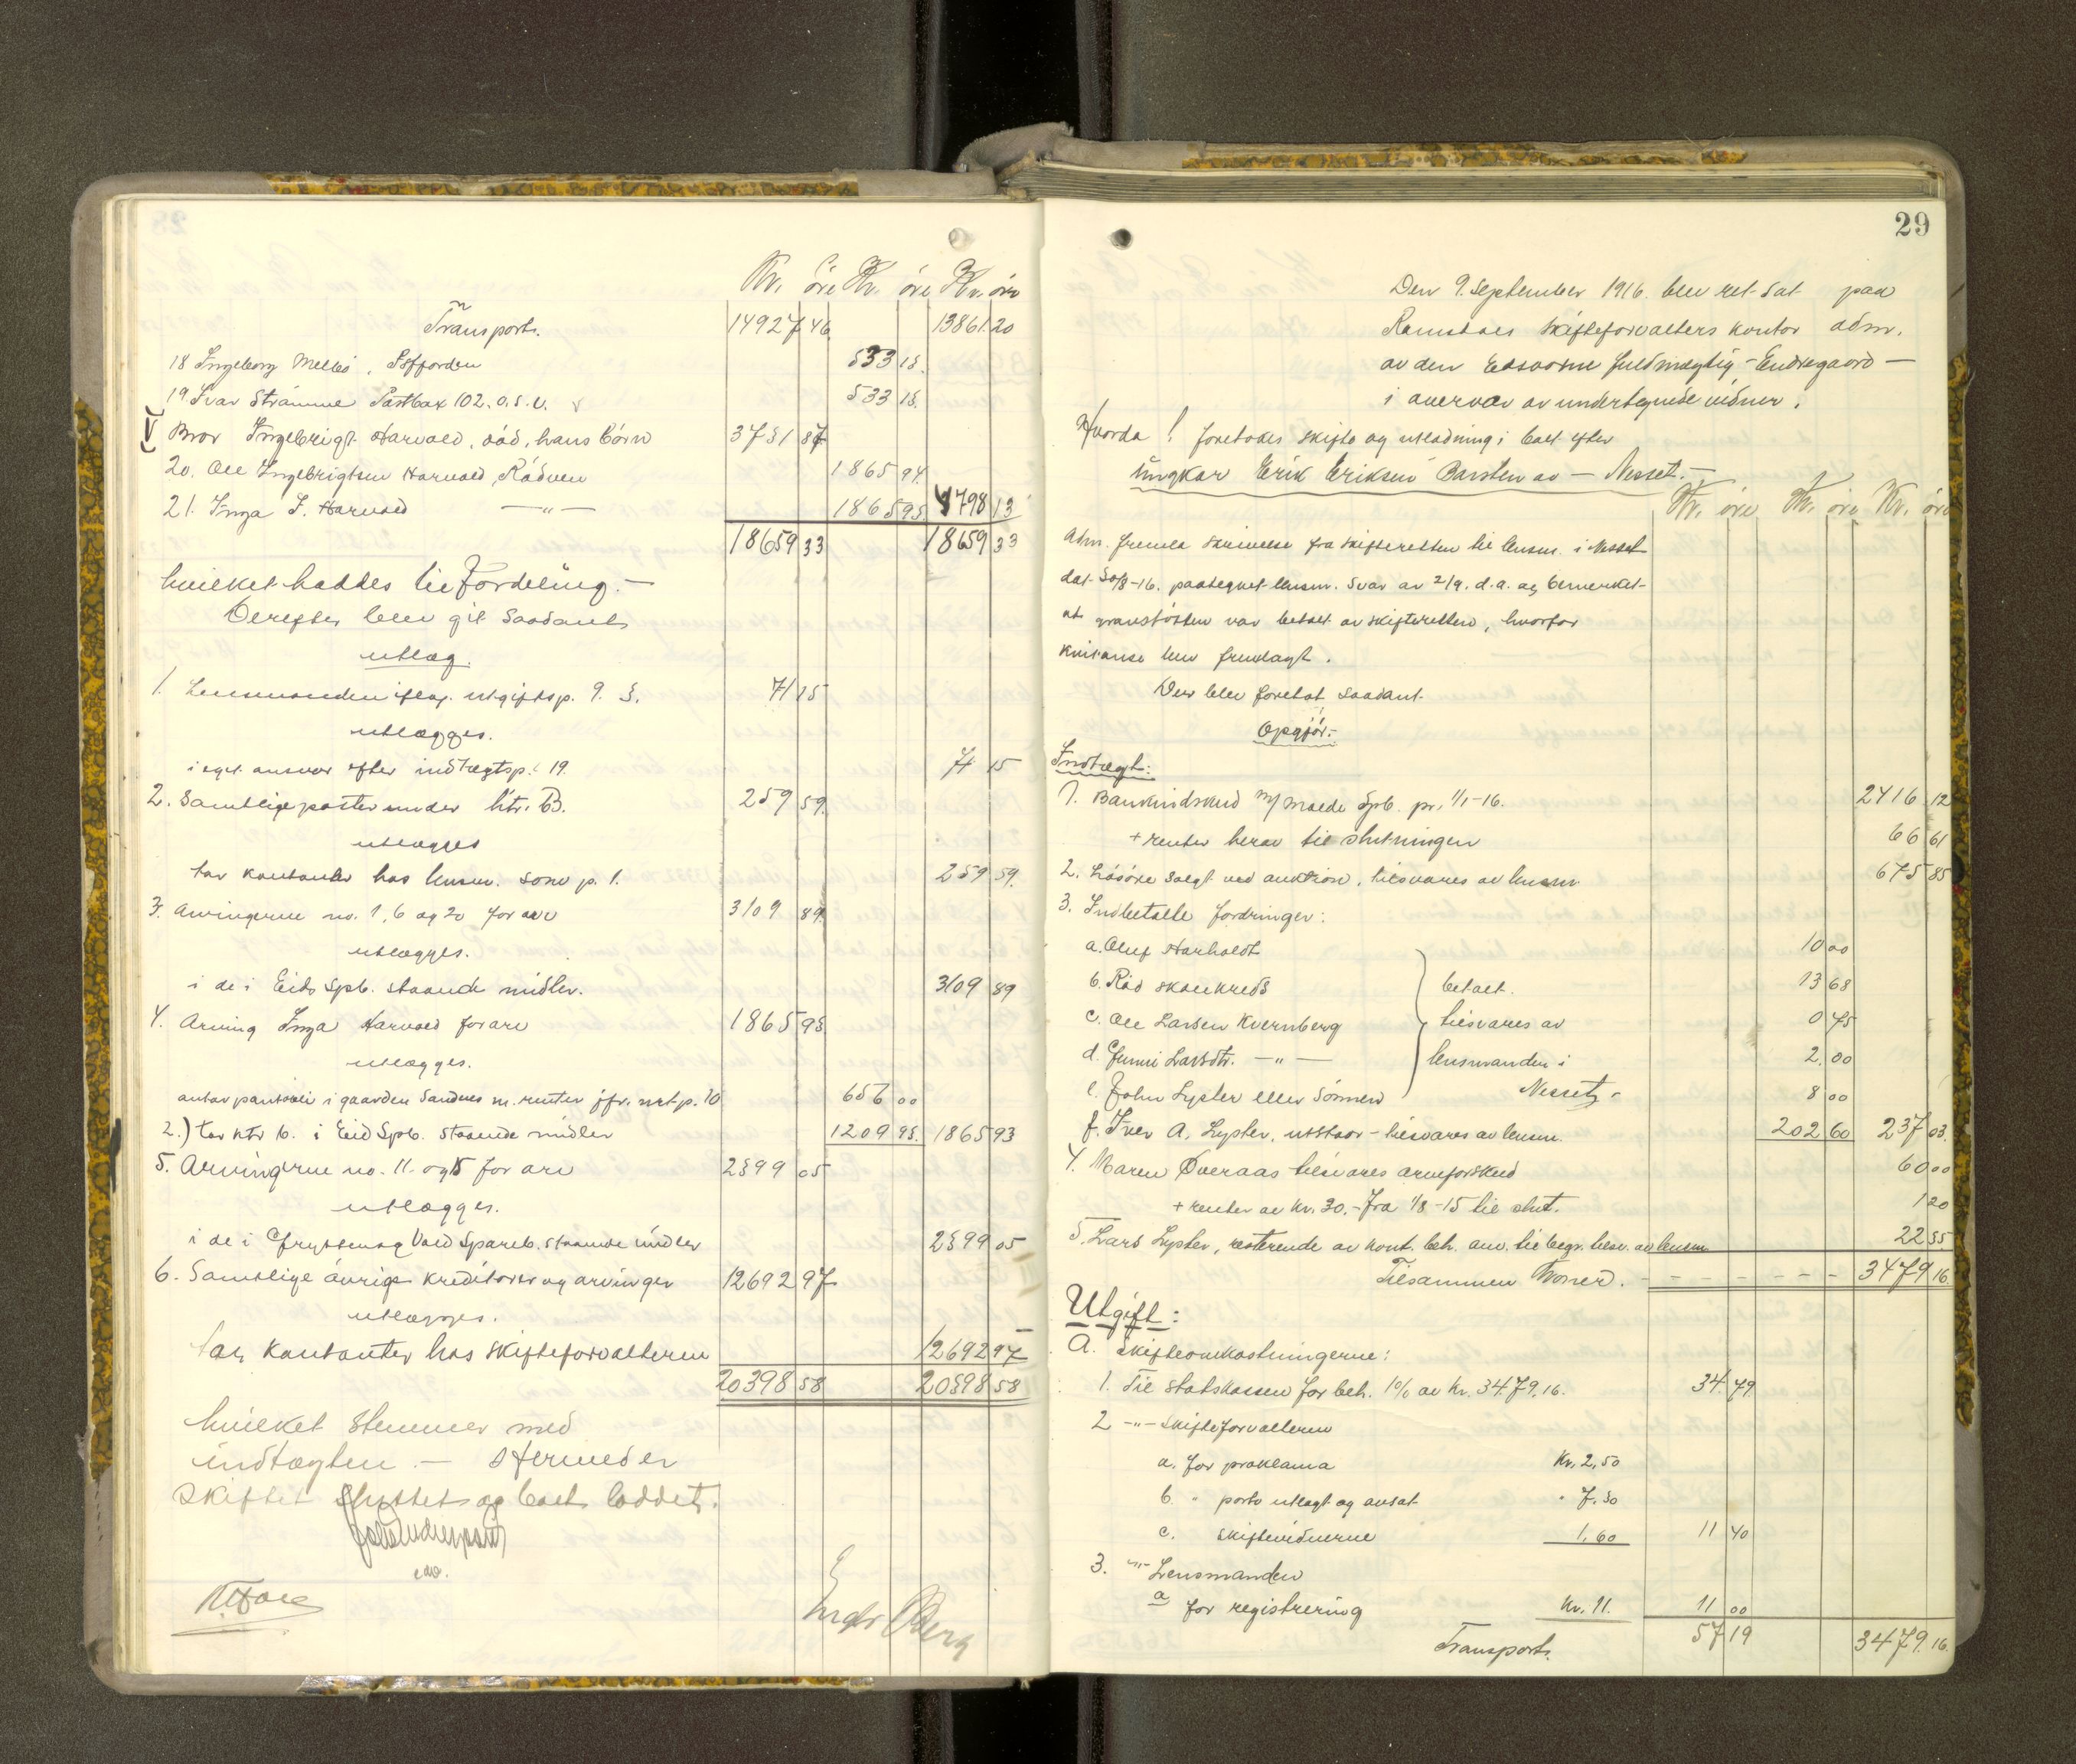 Kr. öre Kr. öre Kr. öre
Transport. 14927 46 13861 20
18 Ingeborg Melbö, Isfjorden 533 15.
19 Ivar Strömme Postbox 102. O.S.V. 533 15.
V Bror Ingebrigt Harvold, död, hans börn 3731 87
20. Ole Ingebrigtsen Harvold, Rödven 1865 94.
21. Inga I. Harvold —"— 1865 93 4798 13
18659 33 18659 33
hvilket haddes til Fordeling.—
Derefter blev git saadant
utlæg.
1. Lensmanden iflg. utgiftsp. 9. 3. 71 15
utlægges.
i eget ansvar efter indtægtsp. 19. 71 15
2. Samtlige poster under litr. B. 259 59.
utlægges
tar kontanter hos lensm. som p. 1. 259 59.
3. Arvingerne no. 1, 6 og 20 for arv 3109 89.
utlægges.
i de i Eids Spb. staaende midler. 3109 89
4. Arving Inga Harvold for arv 1865 93
utlægges.
antar pantobli i gaarden Sandnes m. renter jfr. indt.p. 10 656 00
2.) tar ktr 6. i Eid Spb. staaende midler 1209 93. 1865 93
5. Arvingerne no. 11. og 15 for arv 2399 05
utlægges.
i de i Grytten og Vold Spareb. staaende midler 2399 05
6. Samtlige övrige kreditorer og arvinger 12692 97
utlægges.
tar kontanter hos skifteforvalteren 12692 97
20398 58 20398 58
hvilket stemmer med
indtægten.— Hermed er
skiftet sluttet og boet loddet.
Inge Berg
29
Den 9. September 1916 blev ret sat paa
Romsdals skifteforvalters kontor adm.
av den edsvorne fuldmægtig — Endregaard —
i overvær av undertegnede vidner.
Hvorda! foretokes skifte og utlodning i boet efter
ungkar Erik Eriksen Barsten av — Nesset.—
Kr. öre Kr. öre Kr. öre
Adm. fremla skrivelse fra skifteretten til lensm. i Nesset
dat. 30/8-16. paategnet lensm. svar av 2/9. d.a. og bemerket
at gravstötten var betalt av skifteretten, hvorfor
kvitanse blev fremlagt.
Der blev foretat saadant
Opgjör:—
Indtægt:
1. Bankindskud m/ Molde Spb. pr. 1/1-16. 2416 12
+ renter herav til slutningen 66 61
2. Lösöre solgt ved auktion, tilsvares av lensm. 675 85
3. Indbetalte fordringer:
a. Oluf Harholdt 10 00
b. Röd skolekreds betalt. 13 68
c. Ole Larsen Kvernberg tilsvares av 0 75
d. Gunni Larsdtr. —"— lensmanden i 2. 00
e. John Lyster eller Sönnen Nesset,- 8 00
f. Iver A. Lyster, utstaar — tilsvares av lensm. 202 60 237 03.
4. Maren Överaas tilsvares arveforskud 60 00
+ renter av kr. 30.- fra 1/8-15 til slut. 1 20
5. Lars Lyster, resterende av kont. beh. anv. til begr. tilsv. av lensm. 22 35.
Tilsammen Kroner. - - - - - - - - 3479 16.
Utgift:
A. Skifteomkostningerne:
1. Til statskassen for beh. 1% av kr. 3479.16. 34. 79.
2 —"— skifteforvalteren
a. for proklama Kr. 2,50
b. " porto utlagt og ansat " 7.30
c. skiftevidnerne 1,60 11 40
3. —"— Lensmanden
a for registrering Kr. 11. 11 00
Transport. 57 19 3479. 16.